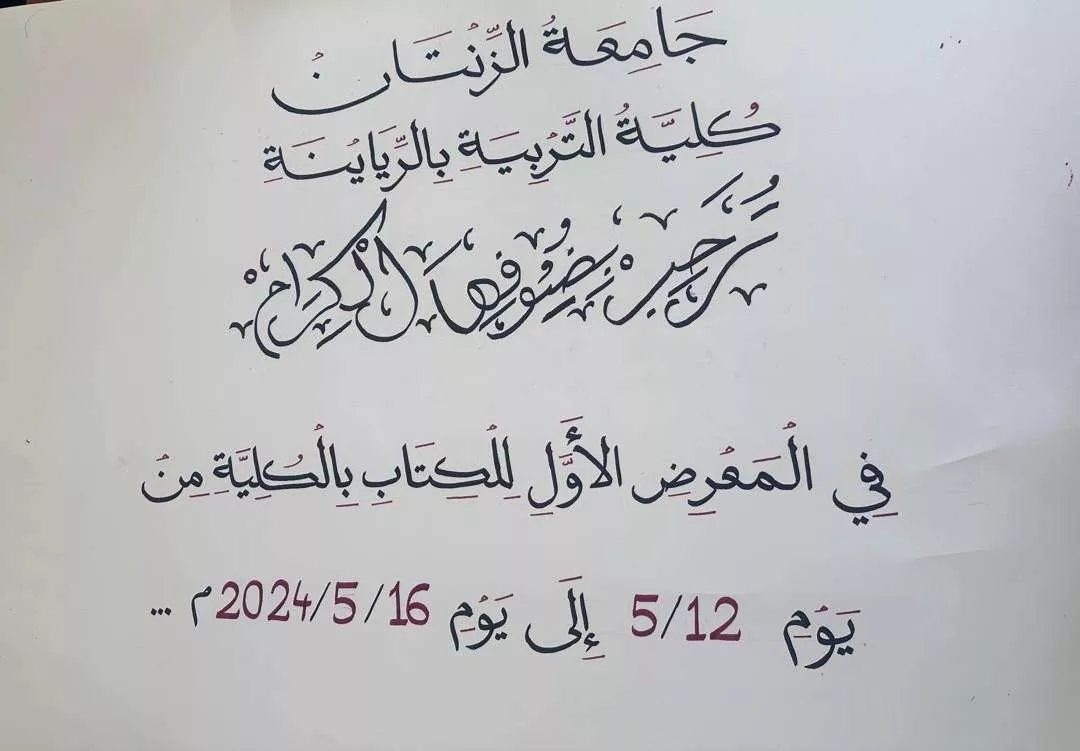 جَامِعَةُ الزِّنْتَان
كُلِيَّةُ التَّرْبِيَةِ بِالرِّيَايْنَةِ
تُرَحِّبُ بِضُيُوفِهَا الْكِرَامْ
فِي الْمَعْرِضِ الأَوَّلِ لِلْكِتَابِ بِالْكُلِيَّةِ مِنْ
يَوْمِ 5/12 إِلَى يَوْمِ 2024/5/16 م ...